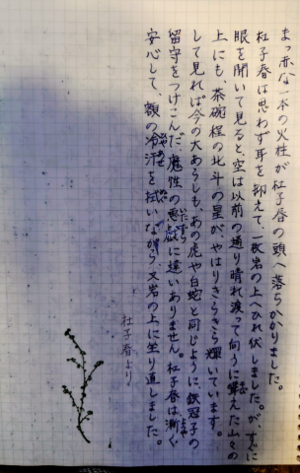 まっ赤な一本の火柱が杜子春の頭へ落ちかかりました。
杜子春は思わず耳を抑えて、一枚岩の上へひれ伏しました。が、すぐに
眼を開いて見ると、空は以前の通り晴れ渡って、向うに聳えた山々の
上にも、茶碗程の北斗の星が、やはりきらきら輝いています。
して見れば今の大あらしも、あの虎や白蛇と同じように、鉄冠子の
留守をつけこんだ、魔性の悪戯に違いありません。杜子春は漸く
安心して、額の冷汗を拭いながら、又岩の上に坐り直しました。
杜子春より